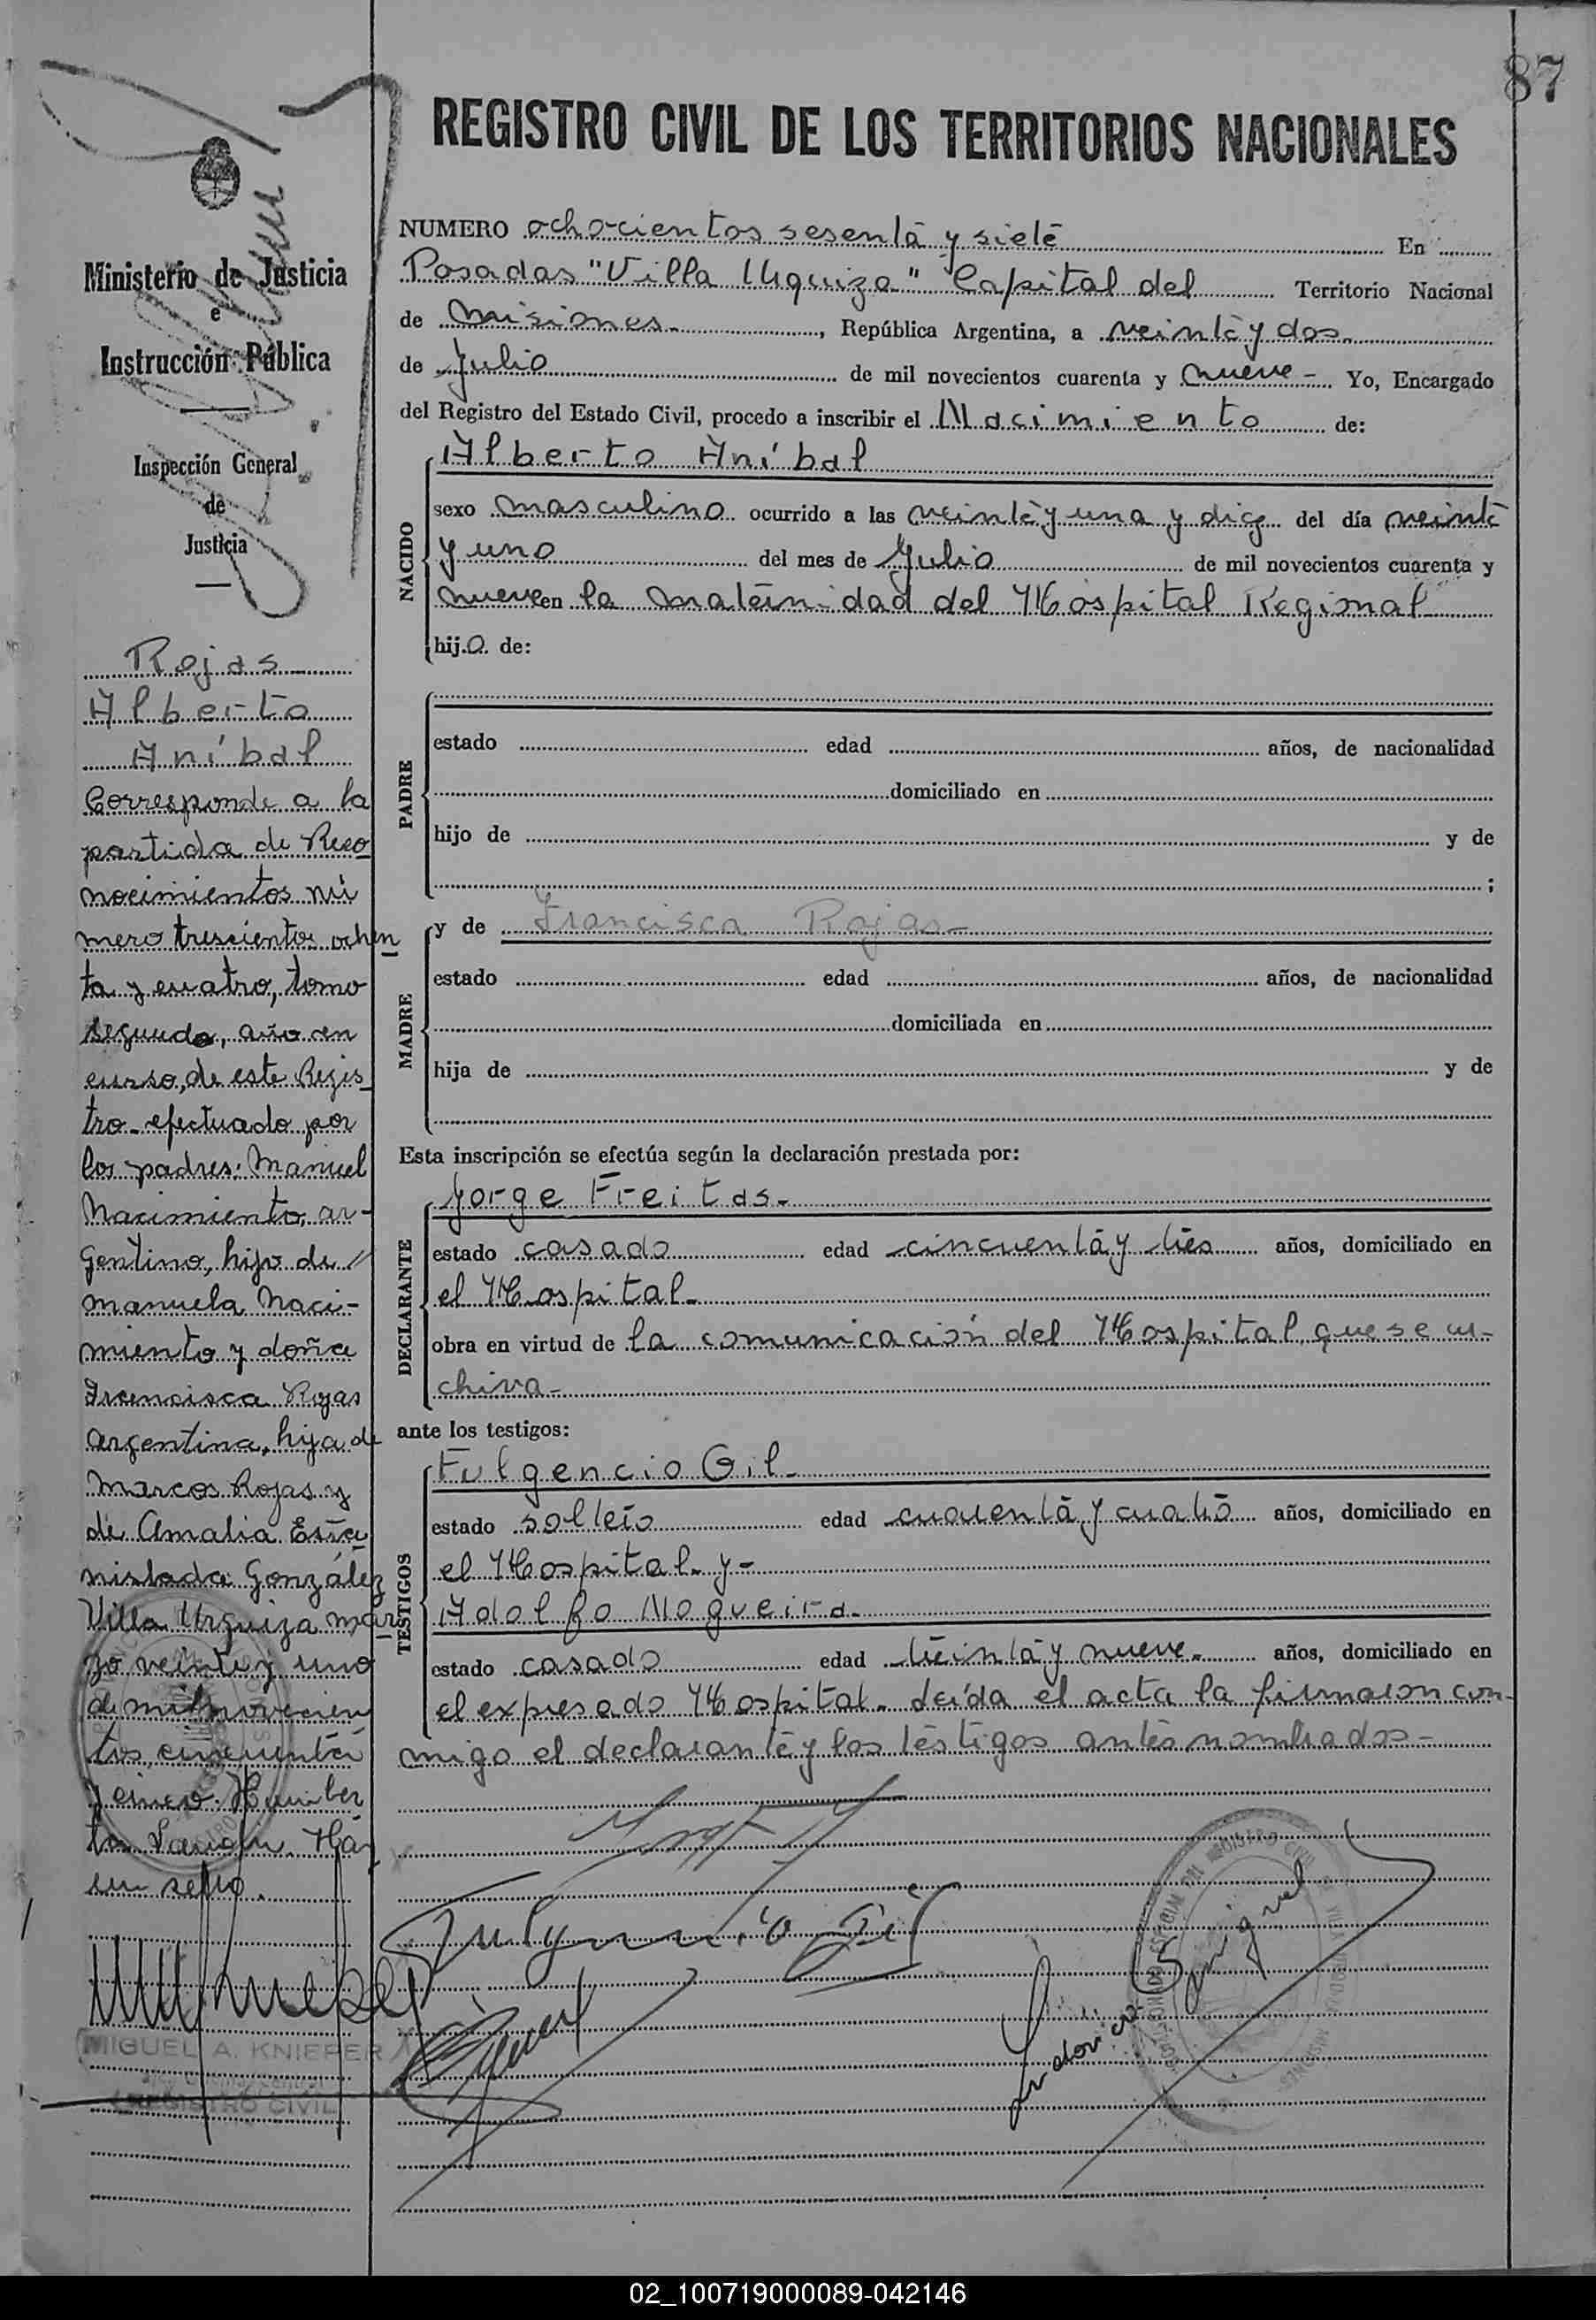 87
REGISTRO CIVIL DE LOS TERRITORIOS NACIONALES
Ministerio de Justicia
e
Instrucción Pública
Inspección General
de
Justicia
Rojas
Alberto
Aníbal
Corresponde a la
partida de Reco
nocimientos nú
mero trescientos ochen
ta y cuatro, tomo
segundo, año en
curso, de este Regis
tro efectuado por
los padres: Manuel
Nacimiento, ar-
gentino, hijo de
Manuela Naci-
miento y doña
Francisca Rojas
argentina, hija de
Marcos Rojas y
de Amalia Esta
nislada González
Villa Urquiza mar
zo veinte y uno
de mil novecien
tos cincuenta
y cinco. Humber
to
un sello.
MIGUEL A. KNIEPER
REGISTRO CIVIL
NUMERO ochocientos sesenta y siete En
Posadas "Villa Urquiza" Capital del Territorio Nacional
de Misiones, República Argentina, a veinte y dos
de Julio de mil novecientos cuarenta y nueve - Yo, Encargado
del Registro del Estado Civil, procedo a inscribir el Nacimiento de:
NACIDO
Alberto Aníbal
sexo masculino ocurrido a las veinte y una y diez del día veinte
y uno del mes de Julio de mil novecientos cuarenta y
nueve en la maternidad del Hospital Regional
hijo de:
PADRE
estado edad años, de nacionalidad
domiciliado en
hijo de y de
;
MADRE
y de Francisca Rojas-
estado edad años, de nacionalidad
domiciliada en
hija de y de
Esta inscripción se efectúa según la declaración prestada por:
DECLARANTE
Jorge Freitas-
estado casado edad cincuenta y tres años, domiciliado en
el Hospital-
obra en virtud de la comunicación del Hospital que se ar-
chiva-
ante los testigos:
TESTIGOS
Fulgencio Gil-
estado soltero edad cuarenta y cuatro años, domiciliado en
el Hospital- y-
Adolfo Nogueira-
estado casado edad treinta y nueve- años, domiciliado en
el expresado Hospital- Leída el acta la firmaron con-
migo el declarante y los testigos antes nombrados-
Fulgencio Gil
Ludovico Sanmiguel
02_100719000089-042146